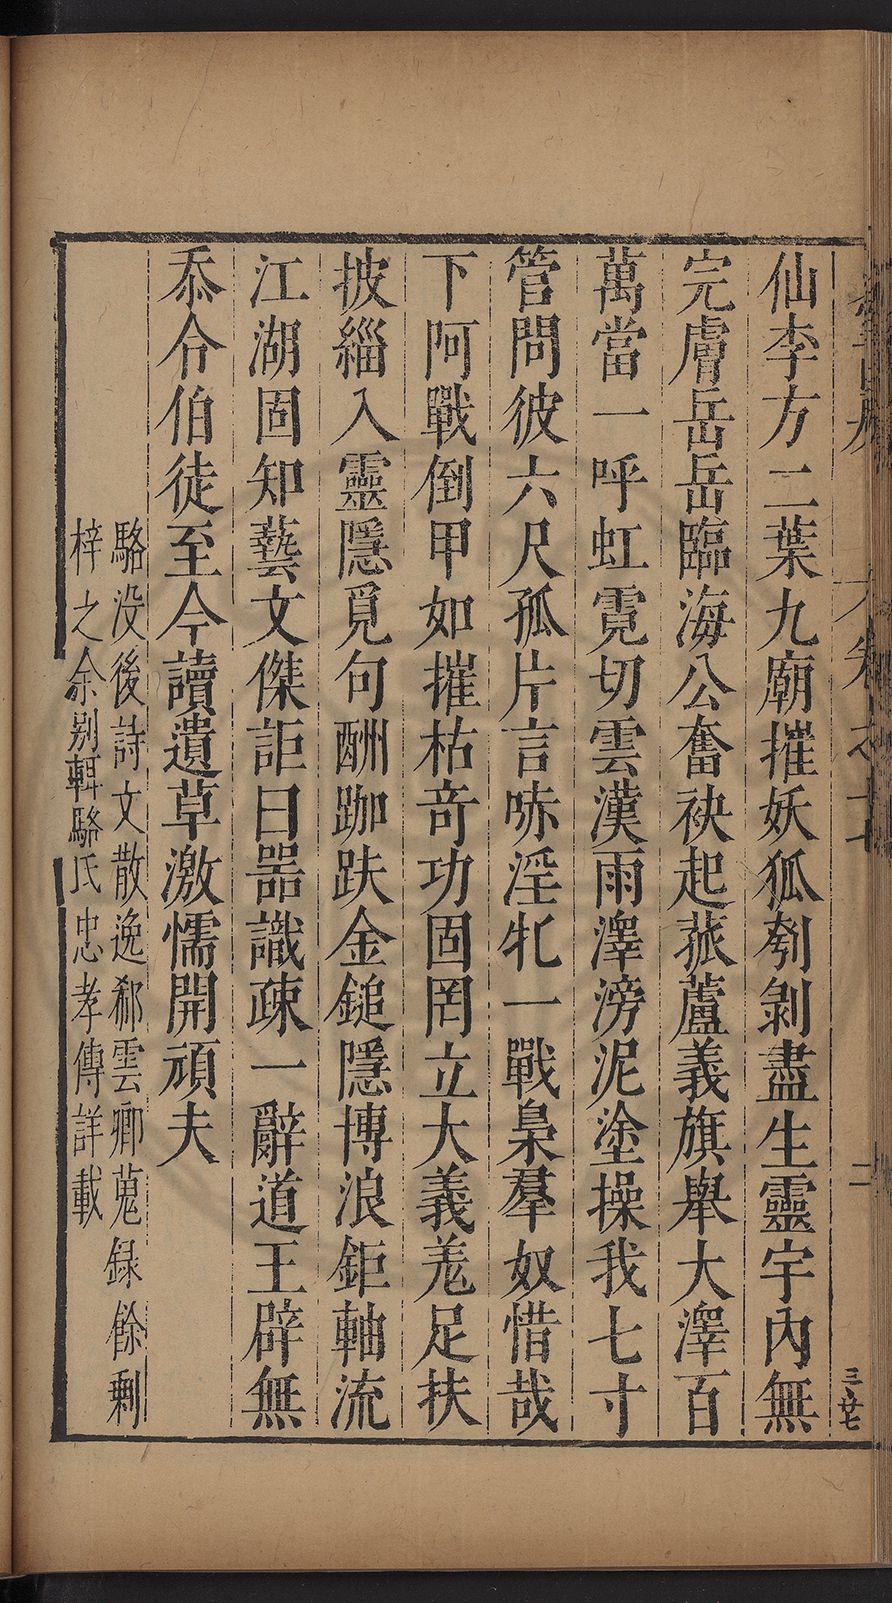 仙李方二葉九廟摧妖狐刳剝盡生靈宇內無
完膚岳岳臨海公奮袂起菰蘆義旗舉大澤百
萬當一呼虹霓切雲漢雨澤滂泥塗操我七寸
管問彼六尺孤片言哧淫牝一戰梟羣奴惜哉
下阿戰倒甲如摧枯奇功固罔立大義羌足扶
披緇入靈隱覓句酬跏趺金鎚隱博浪鉅軸流
江湖固知藝文傑詎曰噐識疎一辭道王辟無
忝令伯徒至今讀遺草激懦開頑夫
駱没後詩文散逸郗雲卿蒐録餘剩
梓之余别輯駱氏忠孝傳詳載
卷之十七
二
三・廿七